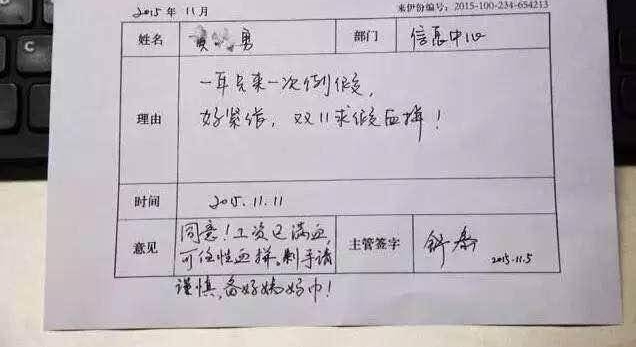 2015 年 11 月 来伊份编号：2015-100-234-654213
姓名 黄 勇 部门 信息中心
理由 一年只来一次例假,
好紧张, 双11求假血拼!
时间 2015.11.11
意见 同意!工资已满血,
可任性血拼。剁手请
谨慎,备好妈妈巾!
主管签字
2015.11.5